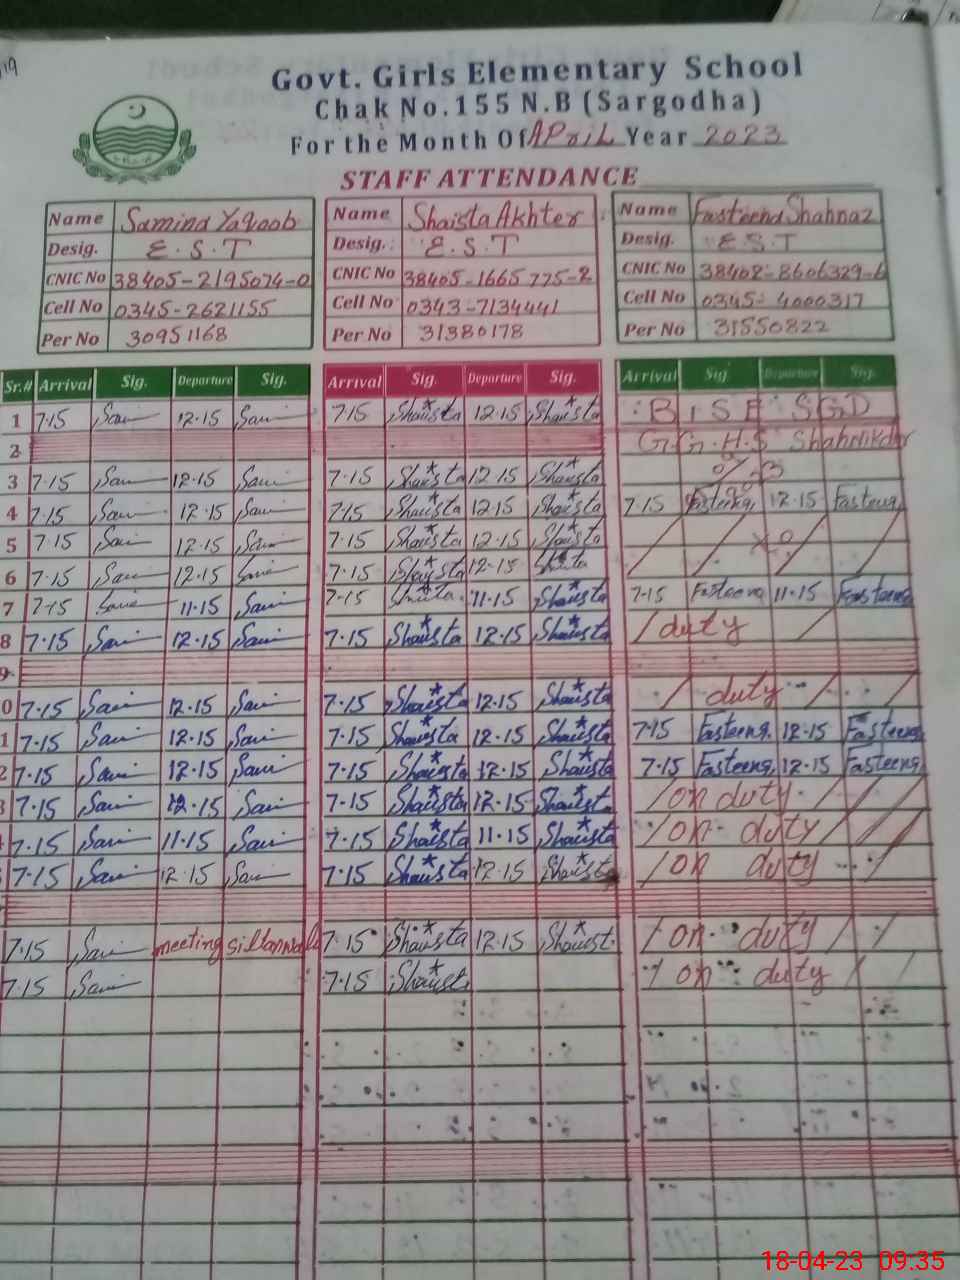 Govt. Girls Elementary School
Chak No. 155 N.B (Sargodha)
For the Month Of APriL Year 2023
STAFF ATTENDANCE
Name Samina Yaqoob
Desig. E.S.T
CNIC No 38405-2195074-0
Cell No 0345-2621155
Per No 30951168
Name Shaista Akhter
Desig. E.S.T
CNIC No 38405-1665775-2
Cell No 0343-7134441
Per No 31380178
Name Fasteena Shahnaz
Desig. E.S.T
CNIC No 38402-8606329-6
Cell No 0345-4000317
Per No 31550822
Sr.# Arrival Sig. Departure Sig. Arrival Sig. Departure Sig. Arrival Sig Departure Sig.
1 7·15 Sami 12·15 Sami 7·15 Shaista 12·15 Shaista BISE SGD
2 G.G.H.S Shahnikdar
3 7·15 Sami 12·15 Sami 7·15 Shaista 12·15 Shaista
4 7·15 Sami 12·15 Sami 7·15 Shaista 12·15 Shaista 7·15 Fasteena 12·15 Fasteena
5 7·15 Sami 12·15 Sami 7·15 Shaista 12·15 Shaista
6 7·15 Sami 12·15 Sami 7·15 Shaista 12·15 Shaista
7 7·15 Sami 11·15 Sami 7·15 Shaista 11·15 Shaista 7·15 Fasteena 11·15 Fasteena
8 7·15 Sami 12·15 Sami 7·15 Shaista 12·15 Shaista duty
9
0 7·15 Sami 12·15 Sami 7·15 Shaista 12·15 Shaista duty
1 7·15 Sami 12·15 Sami 7·15 Shaista 12·15 Shaista 7·15 Fasteena 12·15 Fasteena
2 7·15 Sami 12·15 Sami 7·15 Shaista 12·15 Shaista 7·15 Fasteena 12·15 Fasteena
3 7·15 Sami 12·15 Sami 7·15 Shaista 12·15 Shaista on duty
7·15 Sami 11·15 Sami 7·15 Shaista 11·15 Shaista on duty
7·15 Sami 12·15 Sami 7·15 Shaista 12·15 Shaista on duty
7·15 Sami meeting 7·15 Shaista 12·15 Shaist on duty
7·15 Sami 7·15 Shaist on duty
18-04-23 09:35